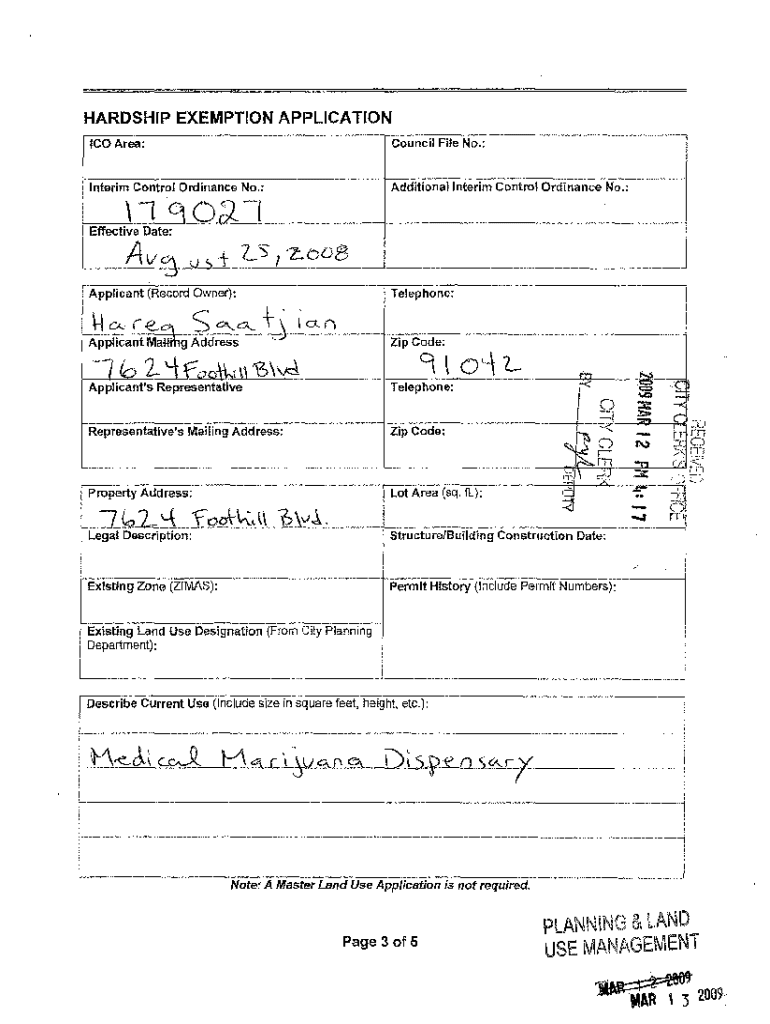 HARDSHIP EXEMPTION APPLICATION
ICO Area:
Council File No.:
Interim Control Ordinance No.:
179027
Additional Interim Control Ordinance No.:
Effective Date:
August 25, 2008
Applicant (Record Owner):
Hareg Saatjian
Telephone:
Applicant Mailing Address
7624 Foothill Blvd
Zip Code:
91042
Applicant's Representative
Telephone:
Representative's Mailing Address:
Zip Code:
RECEIVED
CITY CLERK'S OFFICE
2009 MAR 12 PM 4:17
CITY CLERK
BY
DEPUTY
Property Address:
7624 Foothill Blvd.
Lot Area (sq. ft.):
Legal Description:
Structure/Building Construction Date:
Existing Zone (ZIMAS):
Permit History (Include Permit Numbers):
Existing Land Use Designation (From City Planning
Department):
Describe Current Use (Include size in square feet, height, etc.):
Medical Marijuana Dispensary
Note: A Master Land Use Application is not required.
Page 3 of 5
PLANNING & LAND
USE MANAGEMENT
MAR 12 2009
MAR 13 2009